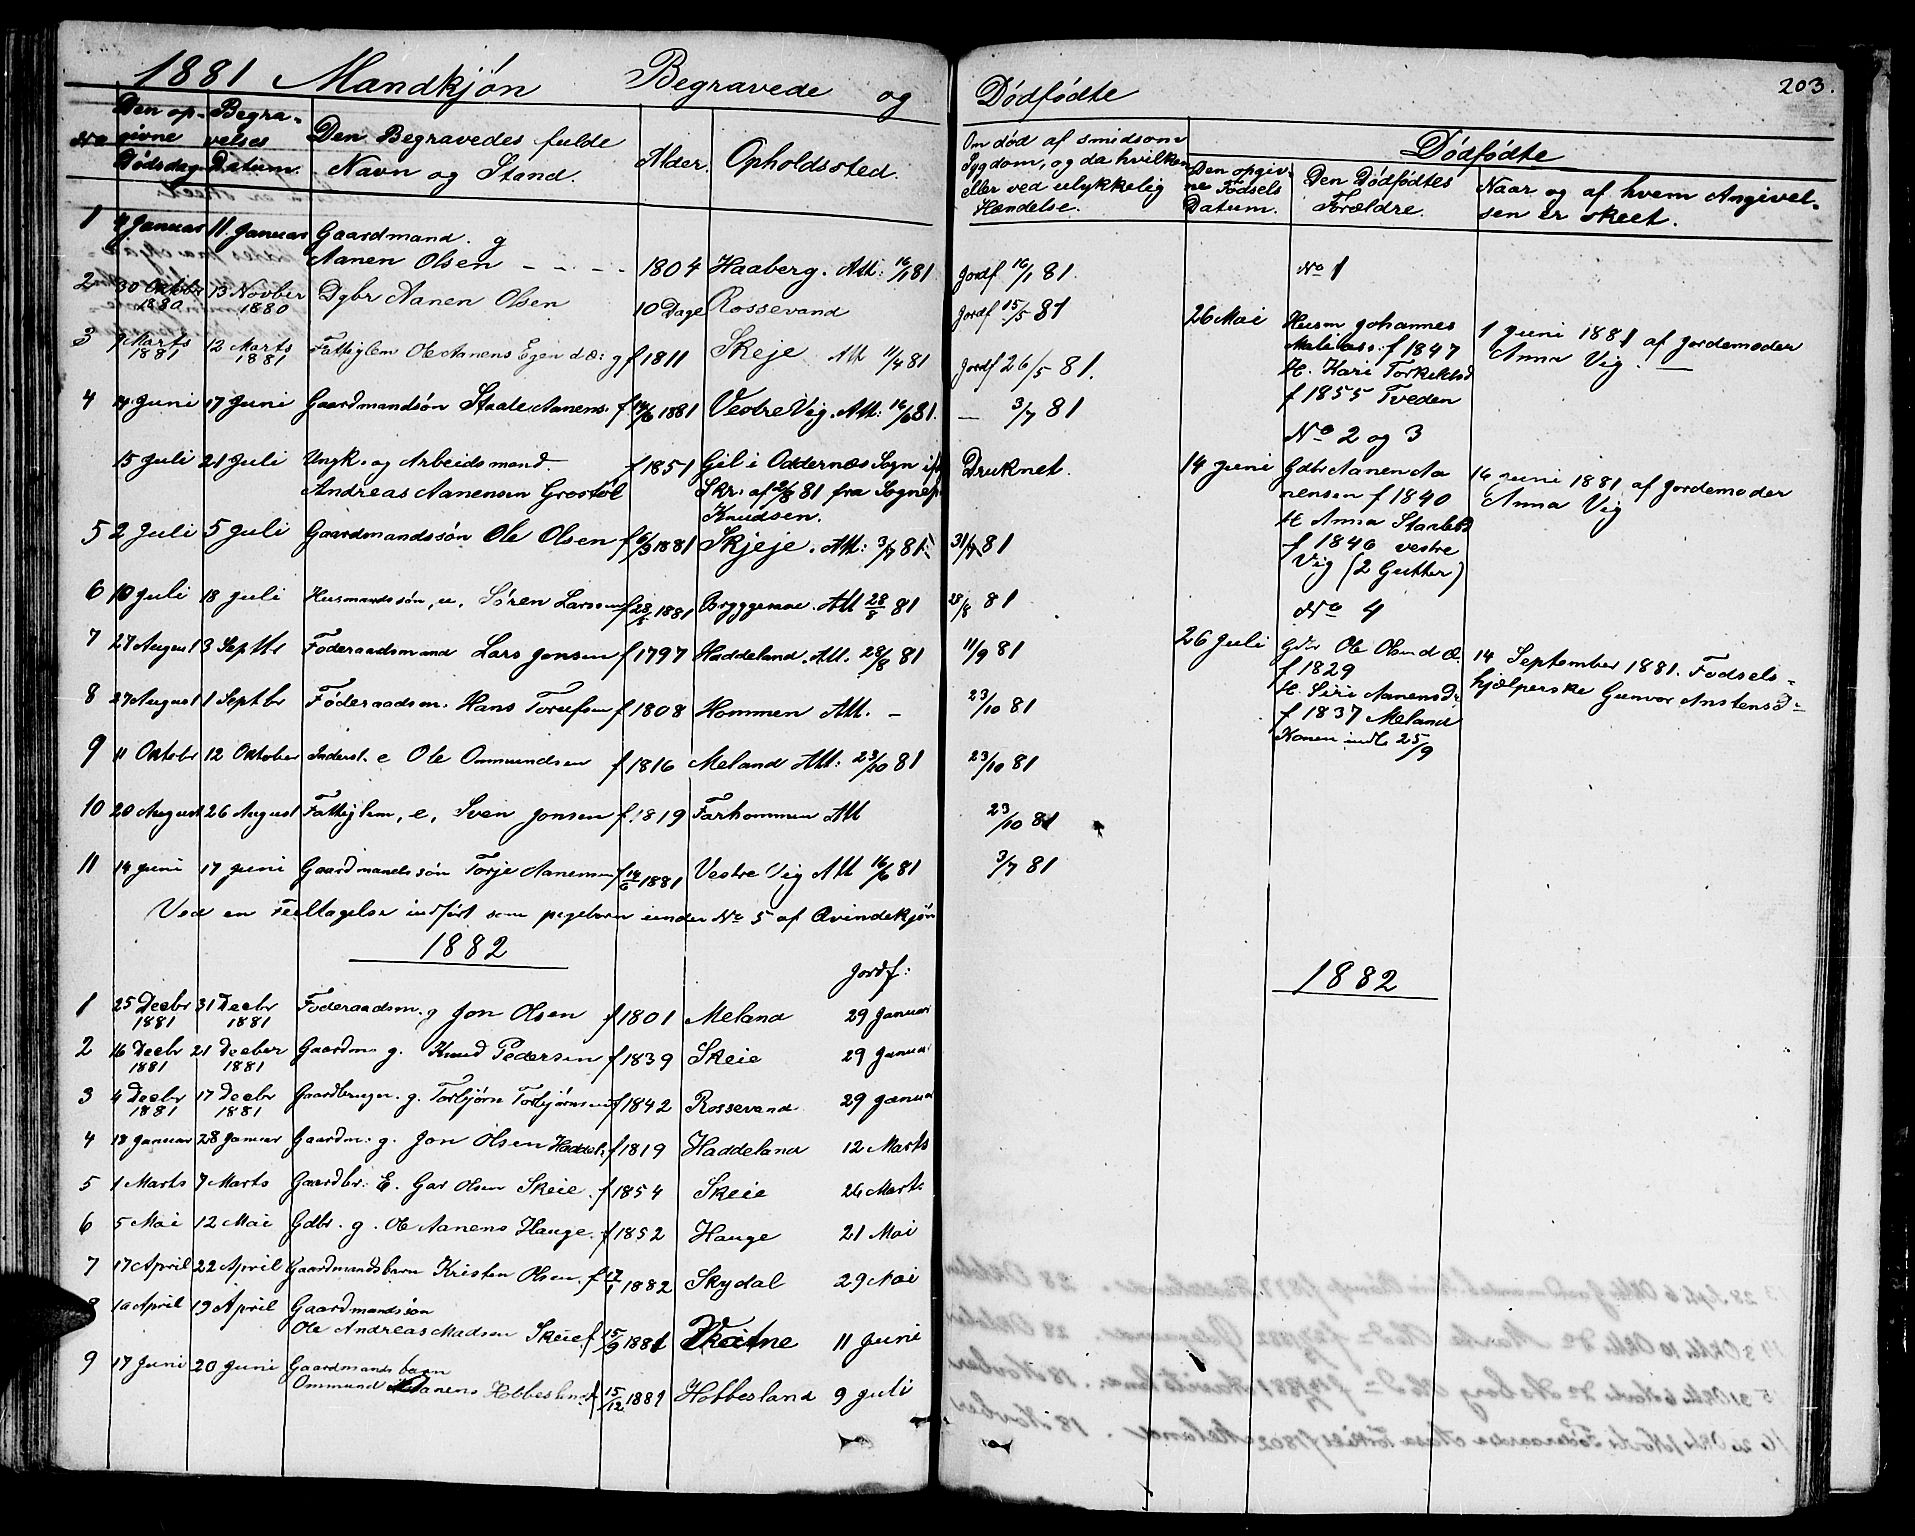 1881 Mandkjøn Begravede og Dødfødte 203.
No
Den opgivne Dødsdag
Begravelses Datum.
Den Begravedes fulde Navn og Stand.
Alder.
Opholdssted.
Om død af smidsom Sygdom, og da hvilken eller ved ulykkelig Hændelse.
Dødfødte
Den opgivne Fødsels Datum.
Den Dødfødtes Forældre.
Naar og af hvem Angivelsen er skeet.
1 4 Januar 11 Januar Gaardmand. g
Aanen Olsen - - - - 1804 Haaberg. Att: 16/1 81 Jordf 16/1 81.
2 30 Oktbr 1880 13 Novber 1880 Dgbr Aanen Olsen 10 Dage Rossevand Jordf 15/5 81
3 7 Marts 1881 12 Marts 1881 Fattiglem Ole Aanens f 1811 Skeje Att 11/4 81 Jordf 26/5 81.
4 14 Juni 17 Juni Gaardmandsøn Staale Aanens. f 14/6 1881 Vestre Vig. Att: 16/6 81. — 3/7 81
15 Juli 21 Juli Ungk. og Arbeidsmand.
Andreas Aanensen Grostøl f 1851 Gil i Oddernæs Sogn
Skr. af 2/8 81 fra Sognepr
Knudsen. Druknet.
5 2 Juli 5 Juli Gaardmandssøn Ole Olsen f 6/3 1881 Skjeje. Att: 3/7 81. 31/7 81
6 10 Juli 18 Juli Husmandssøn, u. Søren Larsen f 28/5 1881 Att 28/8 81 28/8 81
7 27 August 3 Septbr Føderaadsmand Lars Jonsen f 1797 Haddeland. Att. 28/8 81 11/9 81
8 27 August 1 Septbr Føderaadsm. Hans f 1808 Hommen Att. — 23/10 81
9 11 Oktobr 12 Oktober Inderst. e Ole Ommundsen f 1816 Meland Att: 23/10 81 23/10 81
10 20 August 26 August Fattiglem, e, Sven Jonsen f 1819 Farhommen Att 23/10 81
11 14 Juni 17 Juni Gaardmandssøn Torje Aanensen f 14/6 1881 Vestre Vig Att 16/6 81 3/7 81
Ved en Feiltagelse indført som pigebarn under No 5 af Qvindekjøn
No 1
26 Mai Husm Johannes
f 1847
H. Kari
f 1855 Tveden
1 Juni 1881 af Jordemoder
Anna Vig. —
No 2 og 3
14 Juni Gdbr Aanen Aanensen f 1840
H Anna
f 1840 vestre
Vig (2 Gutter)
14 Juni 1881 af Jordemoder
Anna Vig
No 4
26 Juli Ole Olsen d æ.
f 1829
H. Siri Aanensd.
f 1837 Meland
Konen indl. 25/9
14 September 1881. Fødselshjælperske Gunvor Anstensd.
1882
Jordf:
1 25 Decbr 1881 31 Decbr 1881 Føderaadsm. g Jon Olsen f 1801 Meland 29 Januar
2 16 Decbr 1881 21 Decber 1881 Gaardm. g. Knud Pedersen f 1839 Skeie 29 Januar
3 4 Decbr 1881 17 Decbr 1881 Gaardbruger. g. Torbjørn Torbjørnsen f 1842 Rossevand 29 Januar
4 18 Januar 28 Januar Gaardm. g. Jon Olsen Haddel. f 1819 Haddeland 12 Marts
5 1 Marts 7 Marts Gaardbr. E. Olsen Skeie. f 1854 Skeie 26 Marts
6 5 Mai 12 Mai Gdbr. g. Ole Aanens Hauge. f 1852 Hauge 21 Mai
7 17 April 22 April Gaardmandsbarn Kristen Olsen. f 1882 Skydal 29 Mai
8 10 April 19 April Gaardmandsøn
Ole Andreas Madsen Skeie f. 15/9 1881 11 Juni
9 17 Juni 20 Juni Gaardmandsbarn
Ommund Aanens Hobbesland f 15/12 1881 Hobbesland 9 Juli
1882